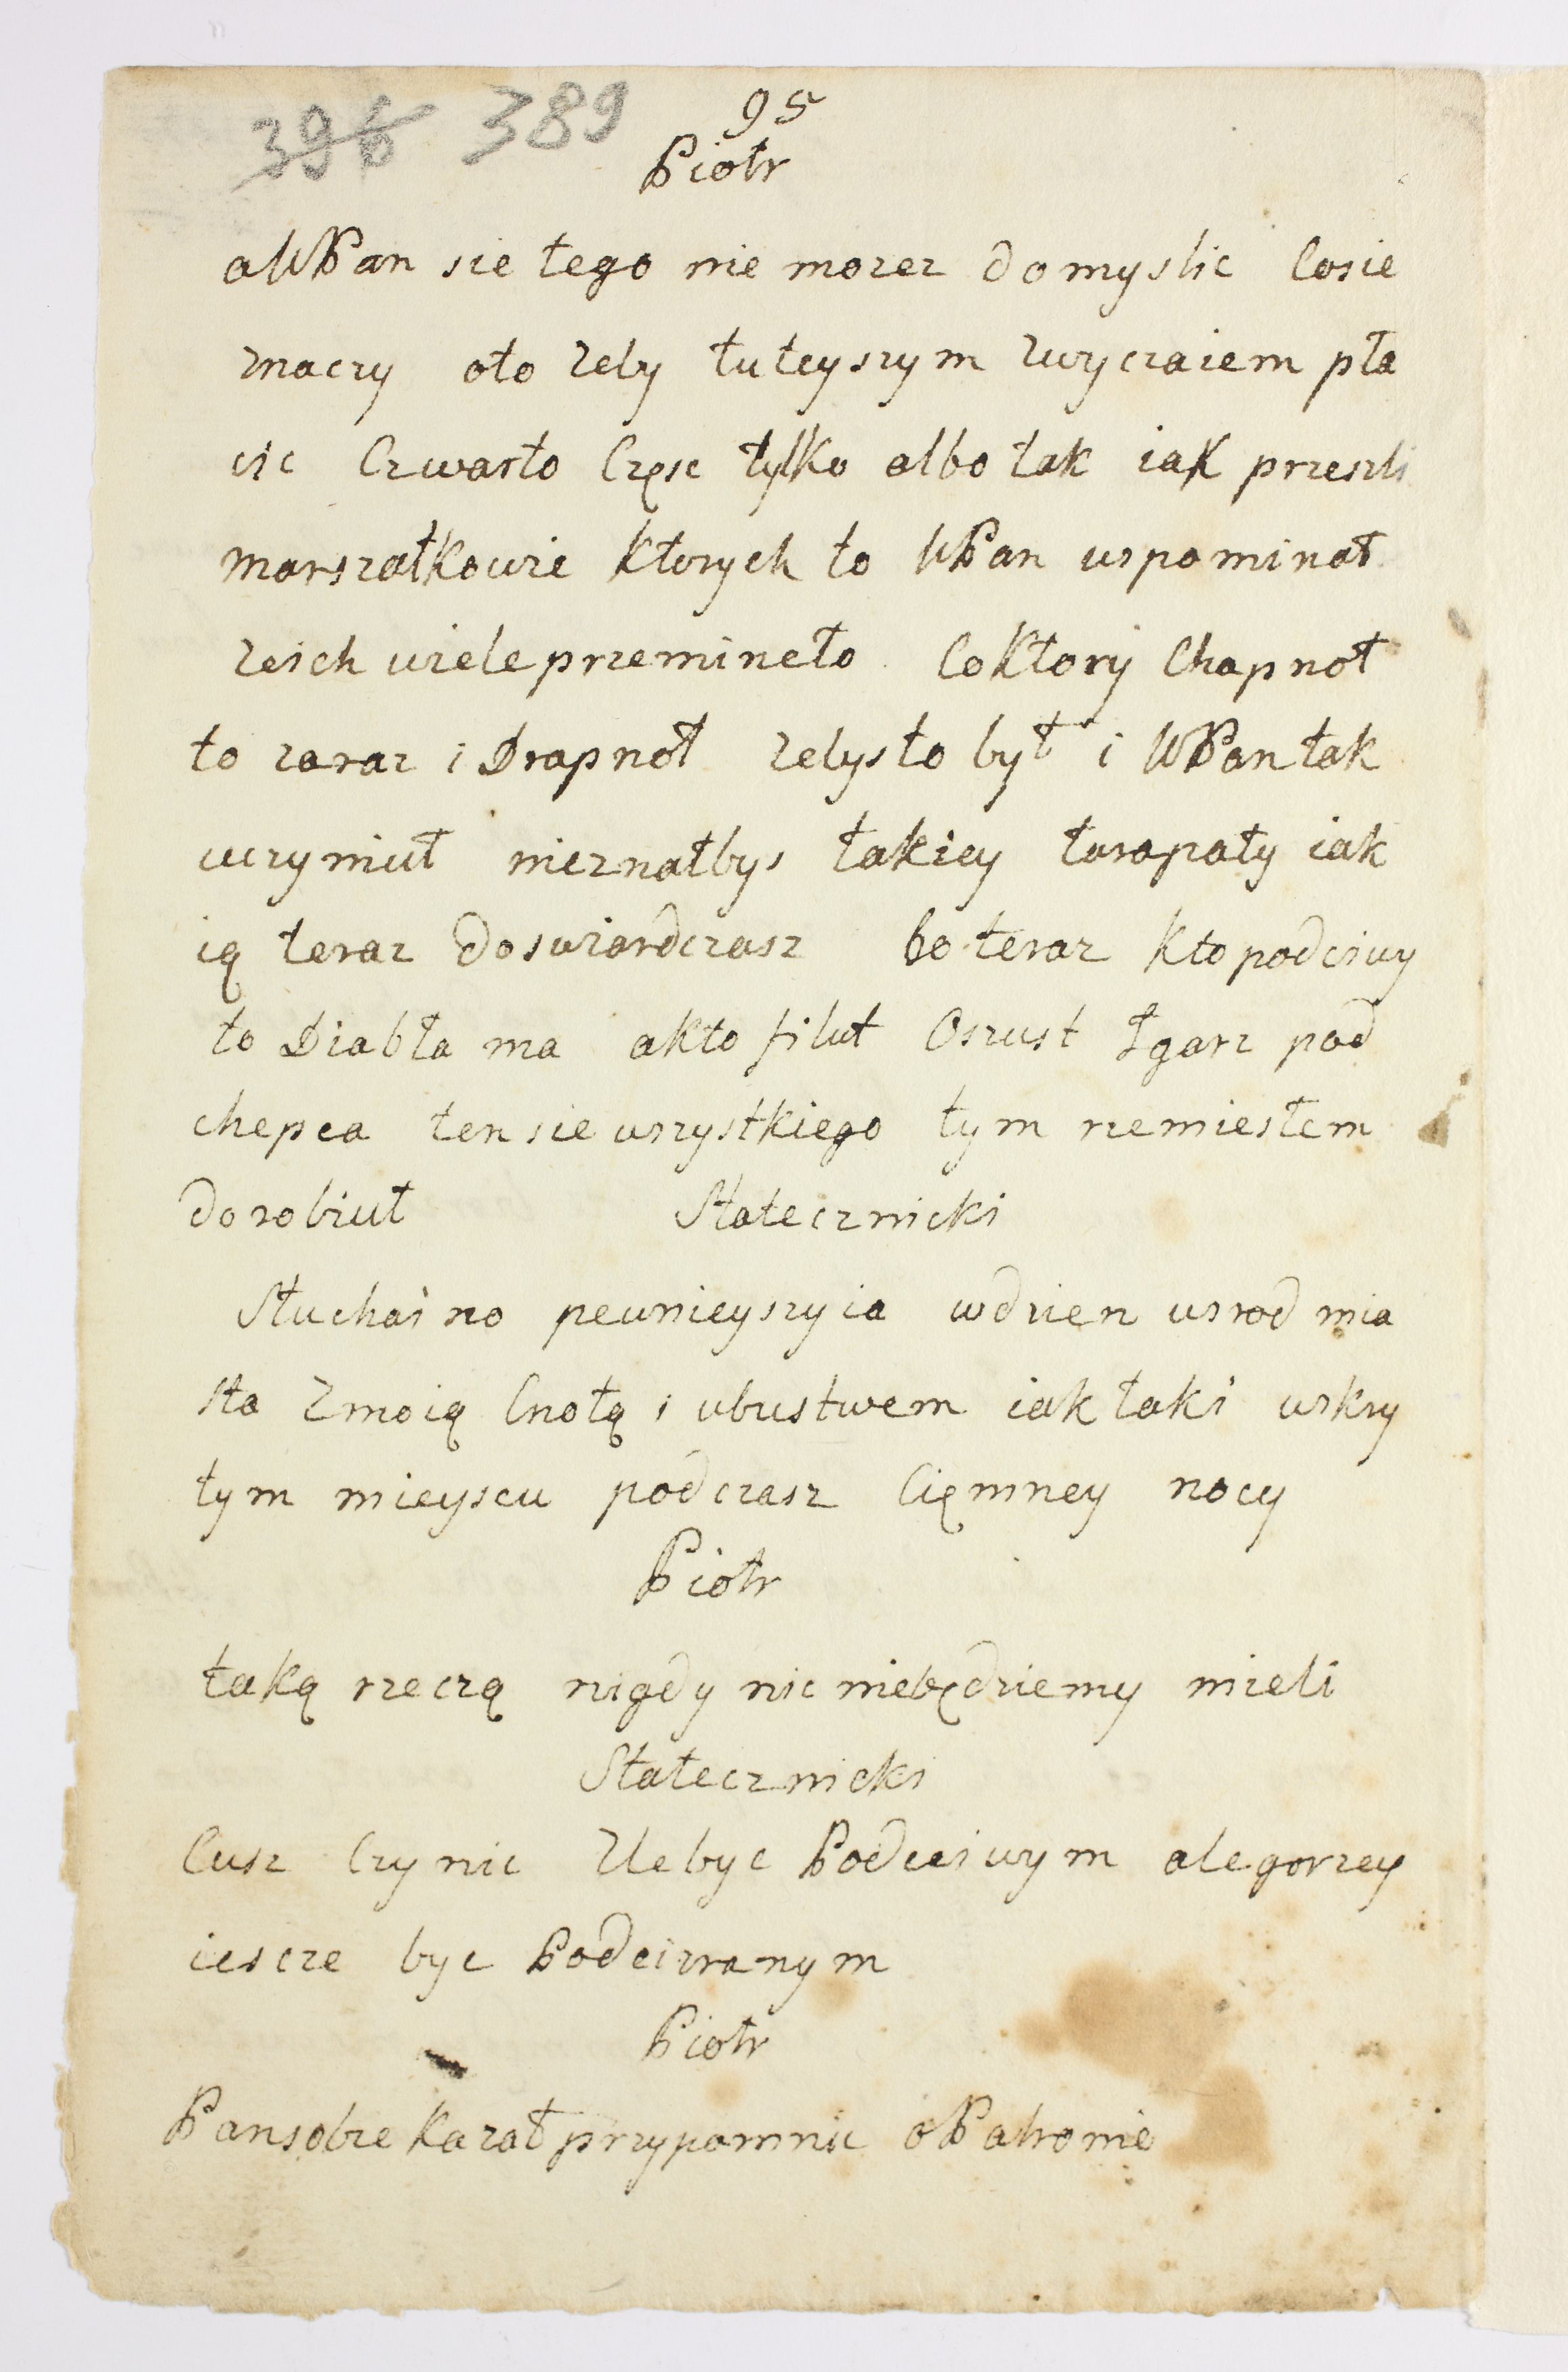 396 389 95
Piotr
aWPan sie tego nie mozez domyslic Cosie
znaczy oto zeby tuteyszym zwyczaiem pła
cic Czwarto Częsc tylko albo tak iak przeszli
marszałkowie Ktorych to WPan wspominał
zeich wiele przemineło Coktory Chapnoł
to zaraz i Drapnoł zebysto był i WPan tak
uczyniuł nieznałbys takiey tarapaty iak
ią teraz doswiardczasz bo teraz Kto podciwy
to Diabła ma akto filut Oszust Łgarz pod
chepca ten sie wszystkiego tym rzemiesłem
dorobiuł Statecznicki
Słuchaino pewnieyszyia wdzien wsrod mia
sta Zmoią Cnotą i ubustwem iak taki wskry
tym mieyscu podczasz Cięmney nocy
Piotr
taką rzeczą nigdy nic niebędziemy mieli
Statecznicki
Cusz Czynic Zle byc Podcciwym ale gorzey
iescze byc Podeizranym
Piotr
Pansobie Kazał przypomnic o Patronie